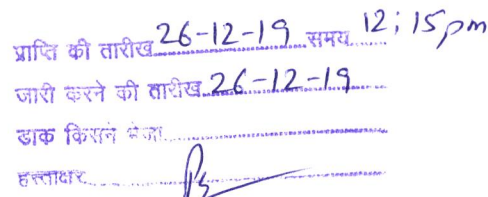 प्राप्ति की तारीख 26-12-19 समय 12;15pm
जारी करने की तारीख 26-12-19
डाक किसने भेजा
हस्ताक्षर